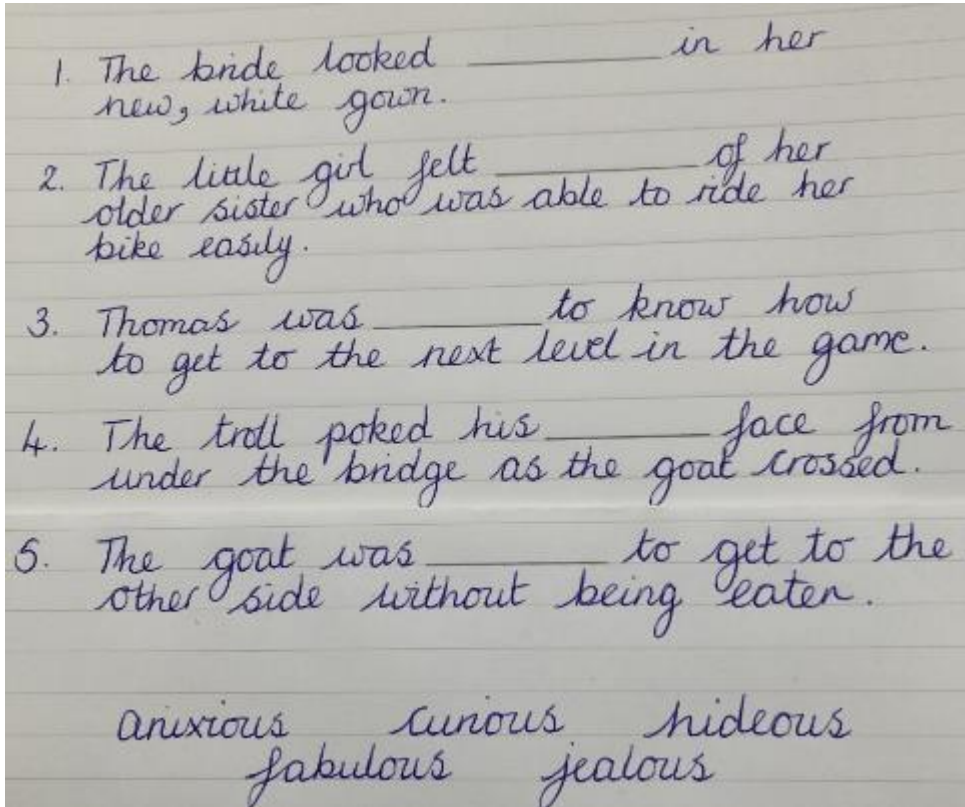 1. The bride looked __________ in her
new, white gown.
2. The little girl felt __________ of her
older sister who was able to ride her
bike easily.
3. Thomas was _________ to know how
to get to the next level in the game.
4. The troll poked his _________ face from
under the bridge as the goat crossed.
5. The goat was _________ to get to the
other side without being eaten.
anixious curious hideous
fabulous jealous